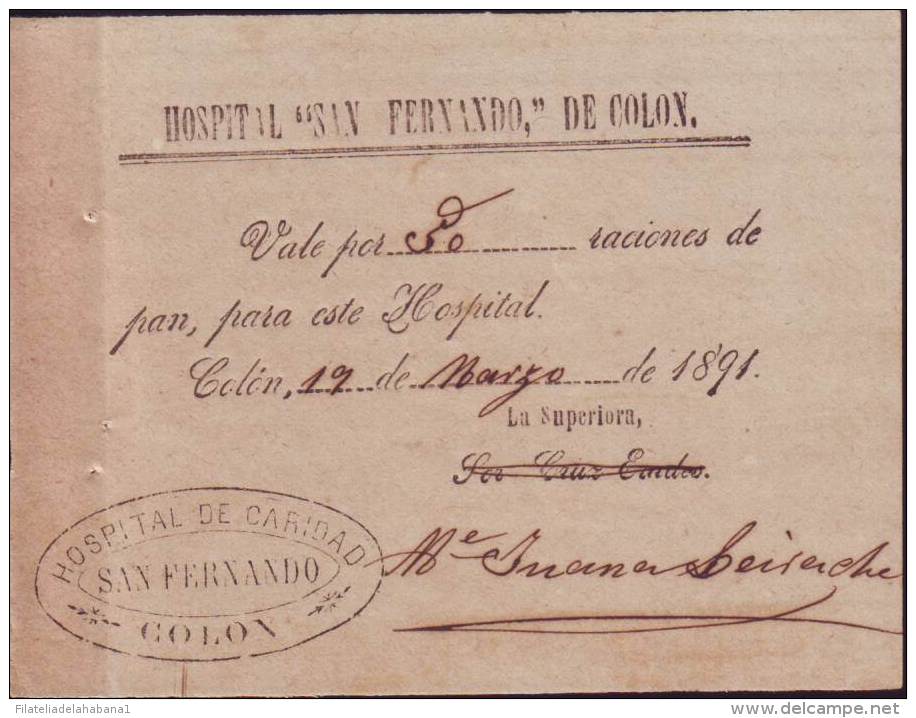 HOSPITAL "SAN FERNANDO," DE COLON.
Vale por 50 raciones de
pan, para este Hospital.
Colón, 19 de Marzo de 1891.
La Superiora,
Sor Cruz
HOSPITAL DE CARIDAD
SAN FERNANDO
COLON
Me Juana
Filateliadelahabana1
delcampe.net